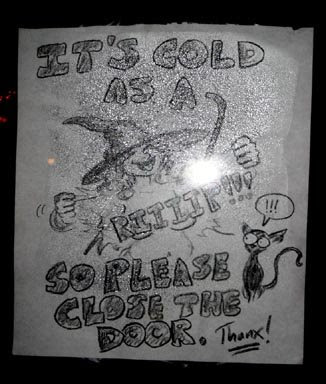 IT'S COLD
AS A
RIIIIP!!!
!!!
SO PLEASE
CLOSE THE
DOOR. Thanx!